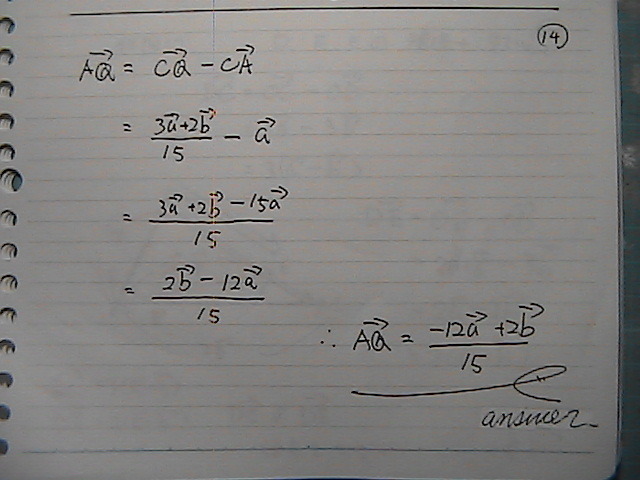 ⑭
$\overrightarrow{AQ} = \overrightarrow{CQ} - \overrightarrow{CA}$
$= \frac{3\vec{a}+2\vec{b}}{15} - \vec{a}$
$= \frac{3\vec{a}+2\vec{b}-15\vec{a}}{15}$
$= \frac{2\vec{b}-12\vec{a}}{15}$
$\therefore \overrightarrow{AQ} = \frac{-12\vec{a}+2\vec{b}}{15}$
answer